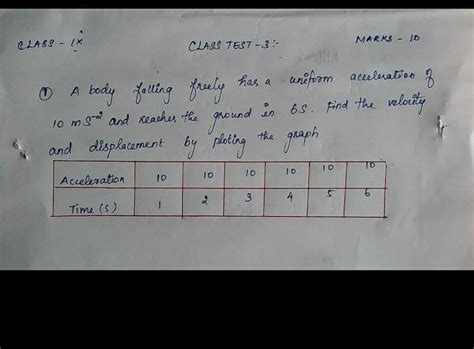 CLASS - IX
CLASS TEST - 3 :-
MARKS - 10
① A body falling freely has a uniform acceleration of
10 ms⁻² and reaches the ground in 6s. Find the velocity
and displacement by ploting the graph.
Acceleration 10 10 10 10 10 10
Time (s) 1 2 3 4 5 6